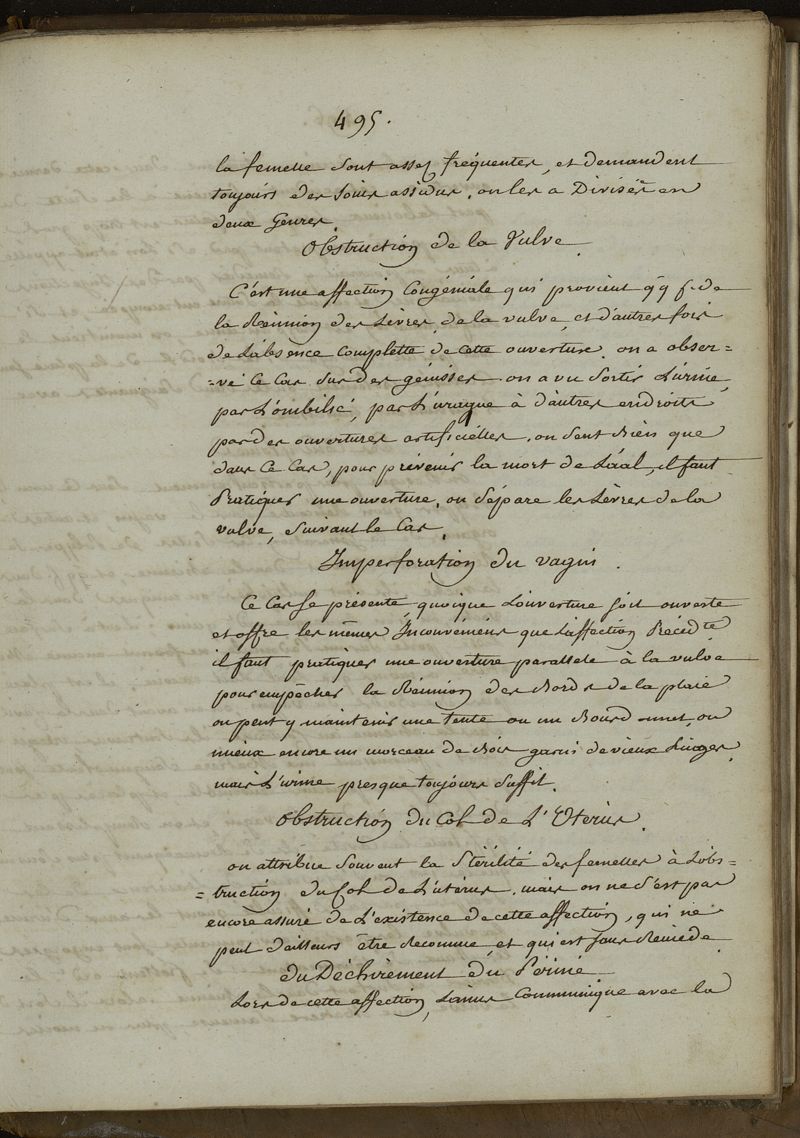 495.
la femelle sont assez fréquentes, et demandent
toujours des soins assidus. on les a Divisés en
deux Genres.
Obstruction de la Vulve
C'est une affection Congéniale qui provient qq f. de
la Réunion des Lèvres de la vulve, et d'autres fois
de L'absence complette de cette ouverture. on a obser=
=vé ce Cas sur des génisses. on a vu sortir L'urine,
par L'ombilic, par L'uraque à d'autres endroits
par des ouvertures artificielles. on sent bien que
dans ce Cas, pour prévenir la mort de L'aal, il faut
Pratiquer une ouverture, ou sépare les Lèvres de la
vulve, suivant le Cas.
Imperforation du vagin.
Ce Cas se présente, quoique L'ouverture soit ouverte
et offre les mêmes Inconvéniens que L'affection Précédte
il faut pratiquer une ouverture parallele à la vulve
pour empêcher la Réunion des Bords de la plaie
on peut y maintenir une tente ou un Bourdonnet, ou
mieux encore un morceau de Bois garni de vieux Linges,
mais L'urine presque toujours suffit.
Obstruction du Col de L'Uterus.
on attribue souvent la Stérilité des femelles à L'obs=
=truction du Col de L'utérus. mais on ne s'est pas
encore assuré de L'existence de cette affection, qui ne
peut d'ailleurs être Reconnue, et qui est sans Remède
du Déchirement du Périné
Lors de cette affection, L'anus Communique avec la